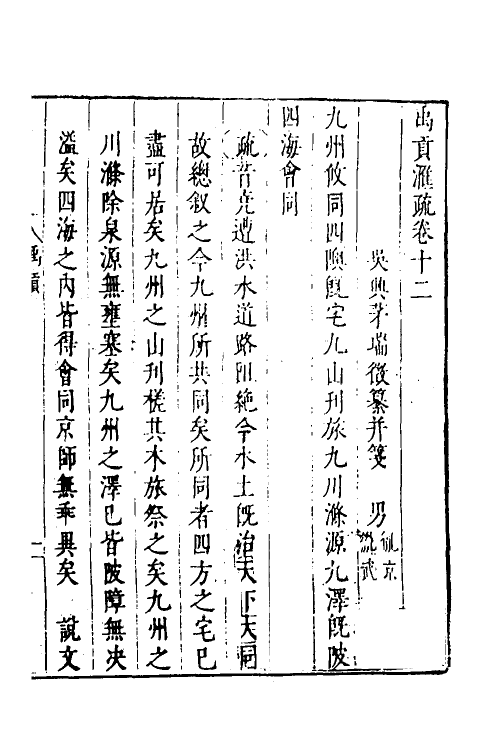 禹貢滙疏卷十二
吳興茅瑞徵纂并箋　男胤京胤武
九州攸同四隩旣宅九山刊旅九川滌源九澤旣陂
四海會同
疏昔堯遭洪水道路阻絶今水土旣治天下大同
故總叙之今九州所共同矣所同者四方之宅已
盡可居矣九州之山刊槎其木旅祭之矣九州之
川滌除泉源無壅塞矣九州之澤已皆陂障無决
溢矣四海之内皆得會同京師無乖異矣　說文